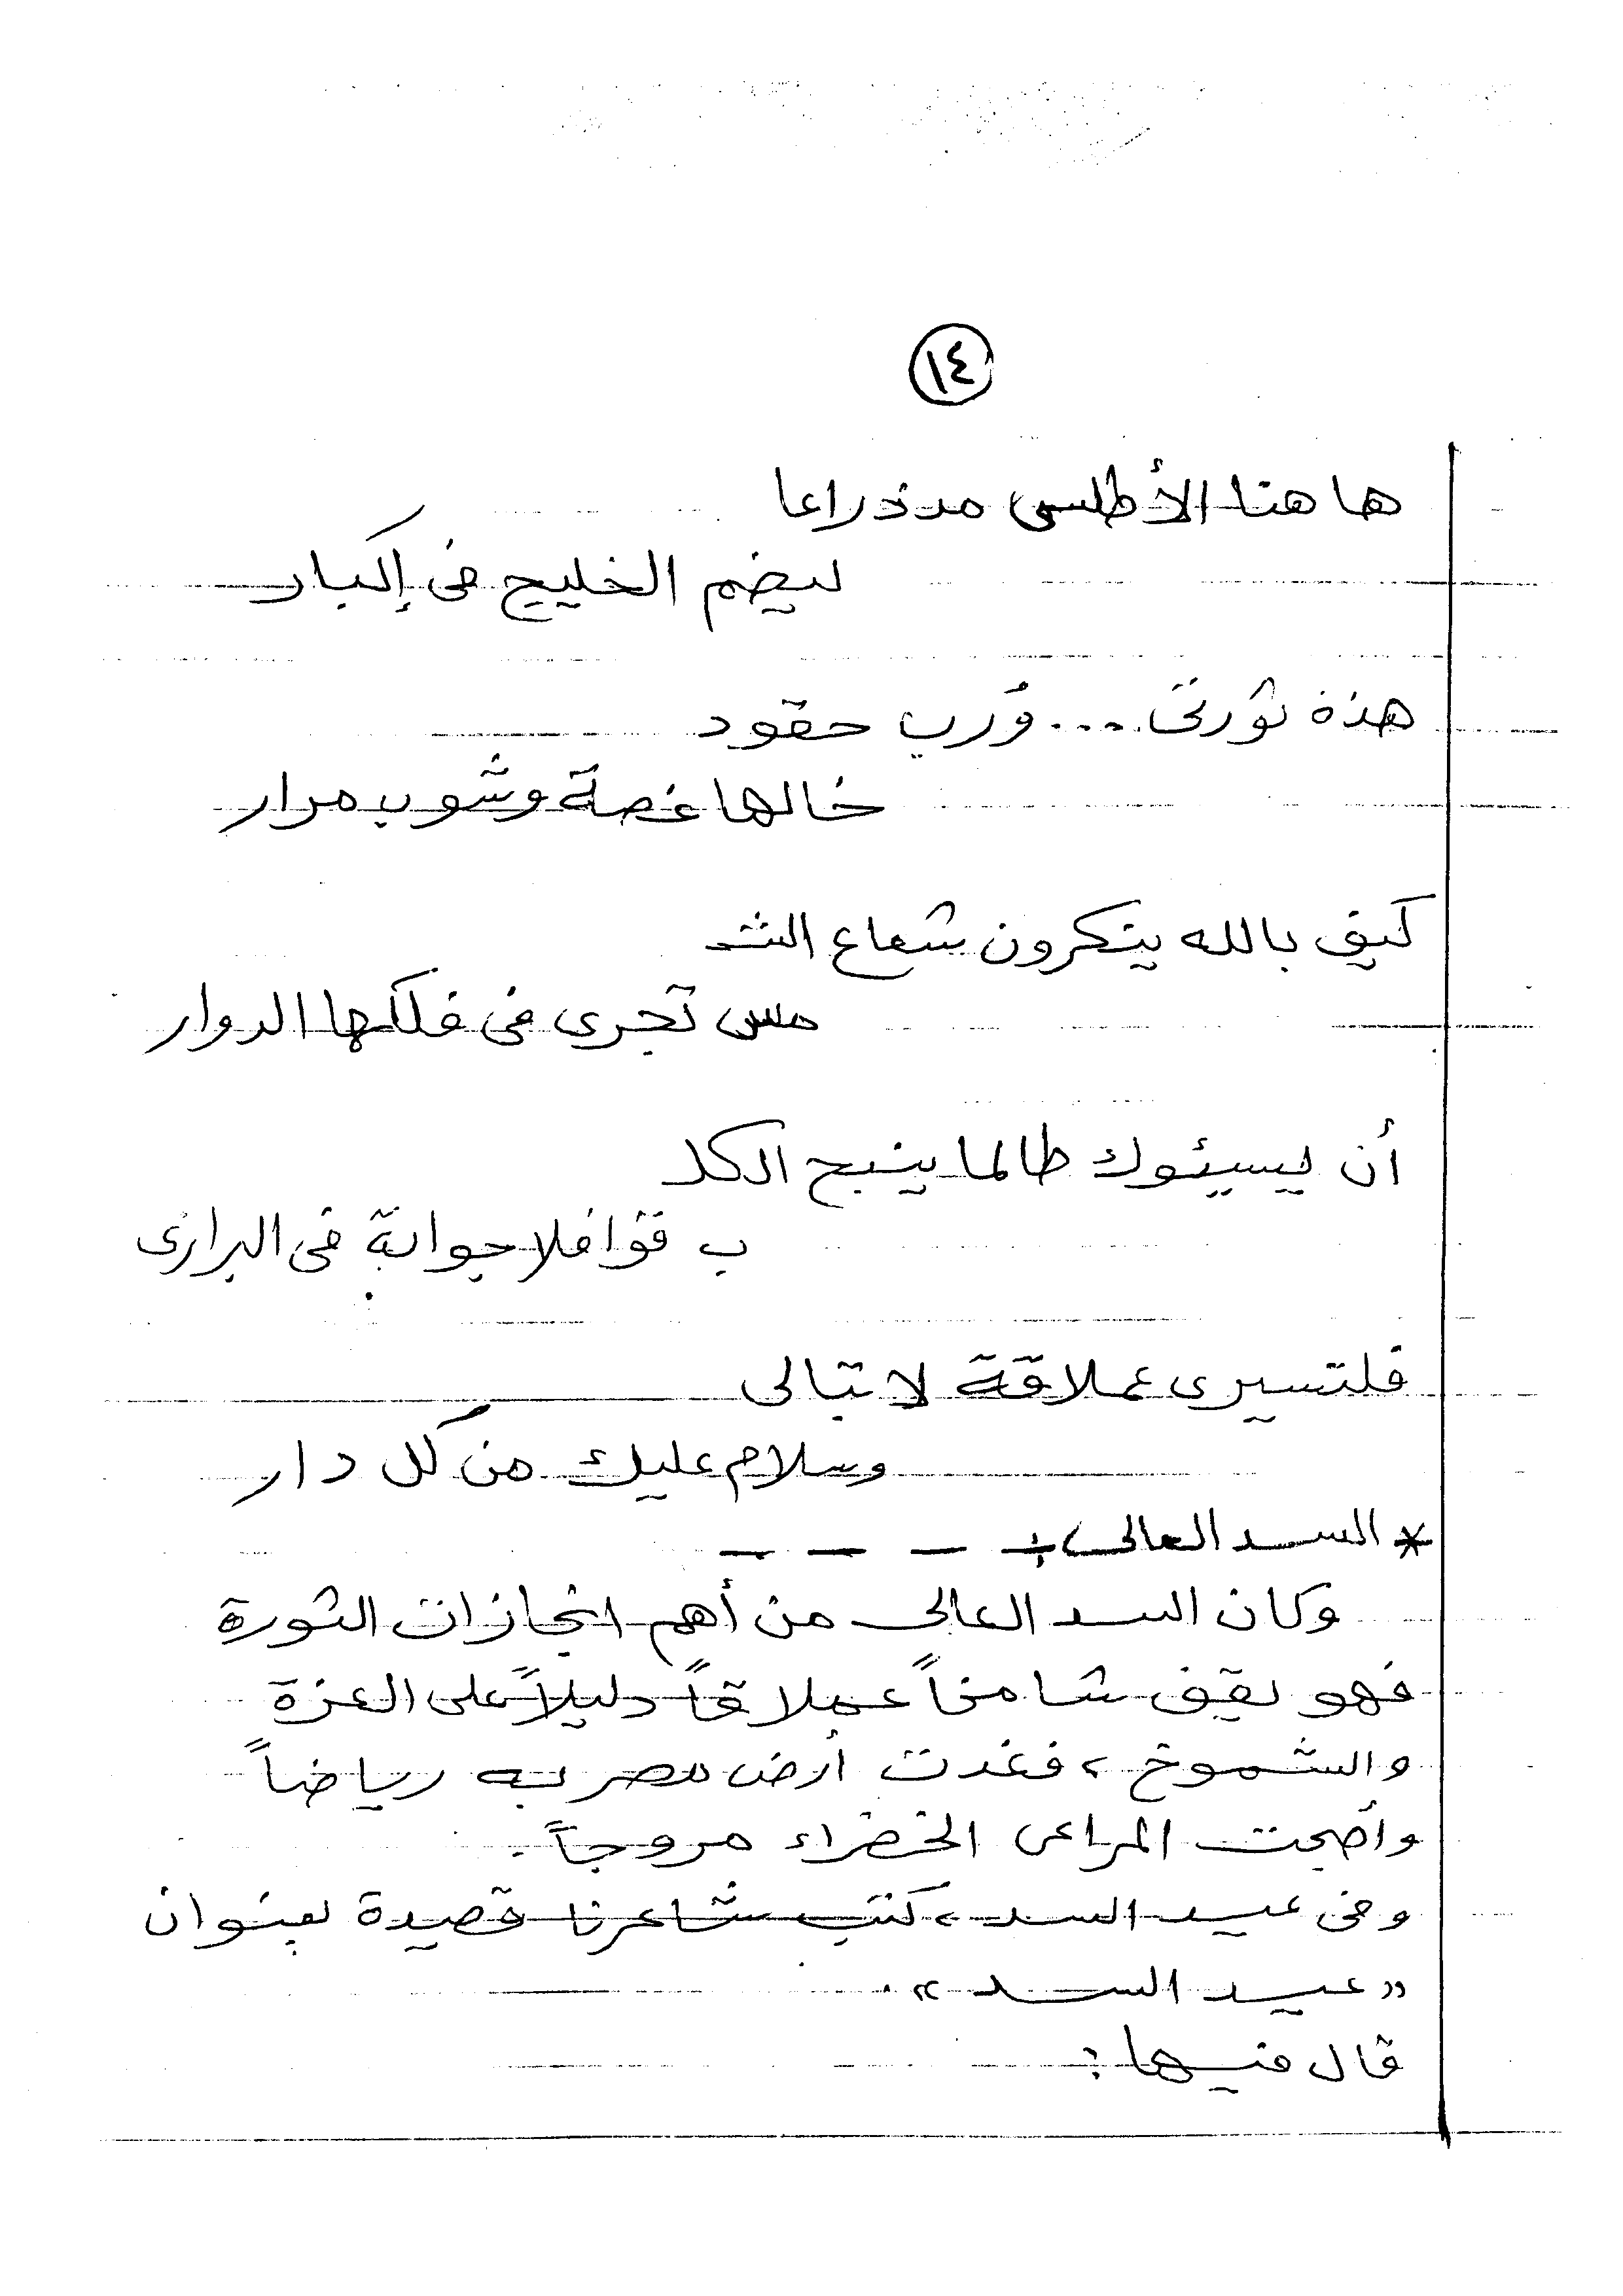 ١٤
ها هنا الأطلسى مد ذراعا
ليضم الخليج فى إكبار
هذه ثورتى .... وُرب حقود
خالها غصة وشوب مرار
كيف بالله ينكرون شعاع الشـ
ـمس تجرى فى فلكها الدوار
أن يسيئوك طالما ينبح الكلـ
ـب قوافلا جوابة فى البرارى
فلتسيرى عملاقة لا تبالى
وسلام عليك من كل دار
* السد العالى :- - - -
وكان السد العالى من أهم انجازات الثورة
فهو يقف شامخاً عملاقاً دليلاً على العزة
والشموخ ، فغدت أرض مصر به رياضاً
وأضحت المراعى الخضراء مروجاً .
وفى عيد السد ، كتب شاعرنا قصيدة بعنوان
« عيد السد » .
قال فيها :